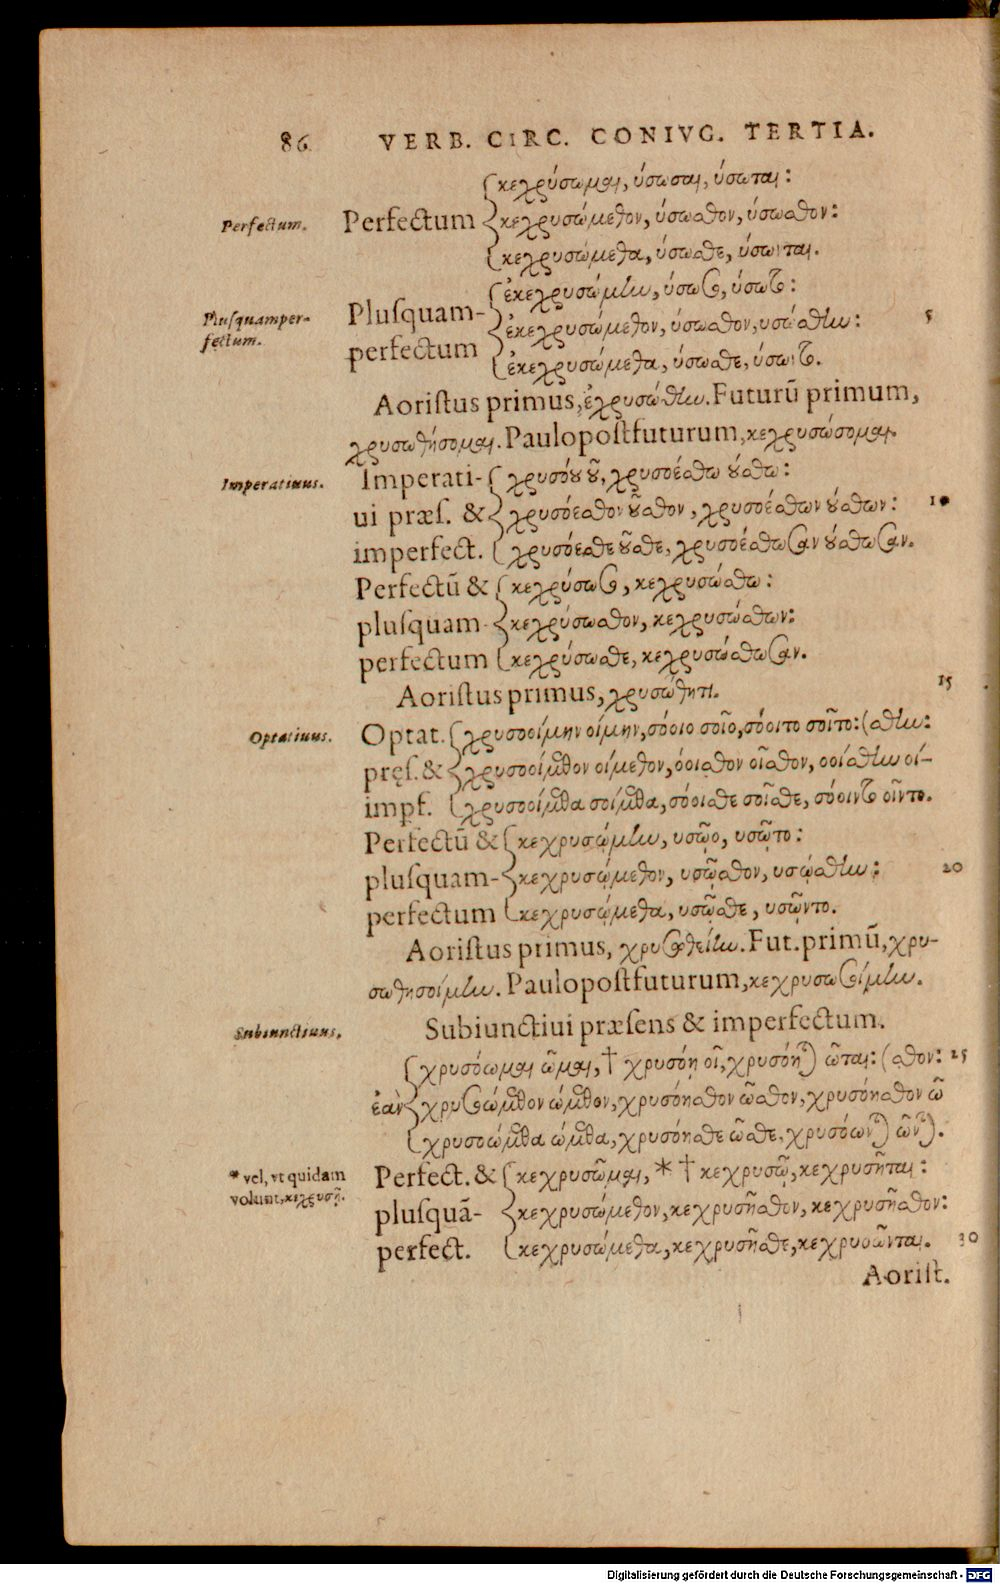 86 VERB. CIRC. CONIVG. TERTIA.
κεχρύσωμαι, ύσωσαι, ύσωται:
Perfectum. Perfectum κεχρυσώμεθον, ύσωσθον, ύσωσθον:
κεχρυσώμεθα, ύσωσθε, ύσωνται.
ἐκεχρυσώμην, ύσωσο, ύσωτο:
Plusquamper-
fectum.
Pluſquam-
perfectum
ἐκεχρυσώμεθον, ύσωσθον, υσώσθην: 5
ἐκεχρυσώμεθα, ύσωσθε, ύσωντο.
Aoriſtus primus, ἐχρυσώθην. Futurū primum,
χρυσωθήσομαι. Paulopoſtfuturum, κεχρυσώσομαι.
Imperatiuus. Imperati- χρυσόου οῦ, χρυσοέσθω ούσθω:
ui præſ. & χρυσόεσθον οῦσθον, χρυσοέσθων ούσθων: 10
imperfect. χρυσόεσθε οῦσθε, χρυσοέσθωσαν ούσθωσαν.
Perfectū & κεχρύσωσο, κεχρυσώσθω:
pluſquam- κεχρύσωσθον, κεχρυσώσθων:
perfectum κεχρύσωσθε, κεχρυσώσθωσαν.
Aoriſtus primus, χρυσώθητι. 15
Optatiuus. Optat. χρυσοοίμην οίμην, σόοιο σοῖο, σόοιτο σοῖτο: (σθην:
pręſ. & χρυσοοίμεθον οίμεθον, όοισθον οῖσθον, οοίσθην οί-
impf. χρυσοοίμεθα σοίμεθα, σόοισθε σοῖσθε, σόοιντο οῖντο.
Perfectū & κεχρυσῴμην, υσῷο, υσῷτο:
pluſquam- κεχρυσῴμεθον, υσῷσθον, υσῴσθην: 20
perfectum κεχρυσῴμεθα, υσῷσθε, υσῷντο.
Aoriſtus primus, χρυσωθείην. Fut. primū, χρυ-
σωθησοίμην. Paulopoſtfuturum, κεχρυσωσοίμην.
Subiunctiuus. Subiunctiui præſens & imperfectum.
χρυσόωμαι ῶμαι, † χρυσόῃ οῖ, χρυσόηται ῶται: (σθον: 25
ἐὰν χρυσοώμεθον ώμεθον, χρυσόησθον ῶσθον, χρυσόησθον ῶ
χρυσοώμεθα ώμεθα, χρυσόησθε ῶσθε, χρυσόωνται ῶνται.
* vel, vt quidam
volunt, κεχρυσῇ.
Perfect. & κεχρυσῶμαι, * † κεχρυσῷ, κεχρυσῆται:
pluſquā- κεχρυσώμεθον, κεχρυσῆσθον, κεχρυσῆσθον:
perfect. κεχρυσώμεθα, κεχρυσῆσθε, κεχρυσῶνται. 30
Aoriſt.
Digitalisierung gefördert durch die Deutsche Forschungsgemeinschaft - DFG